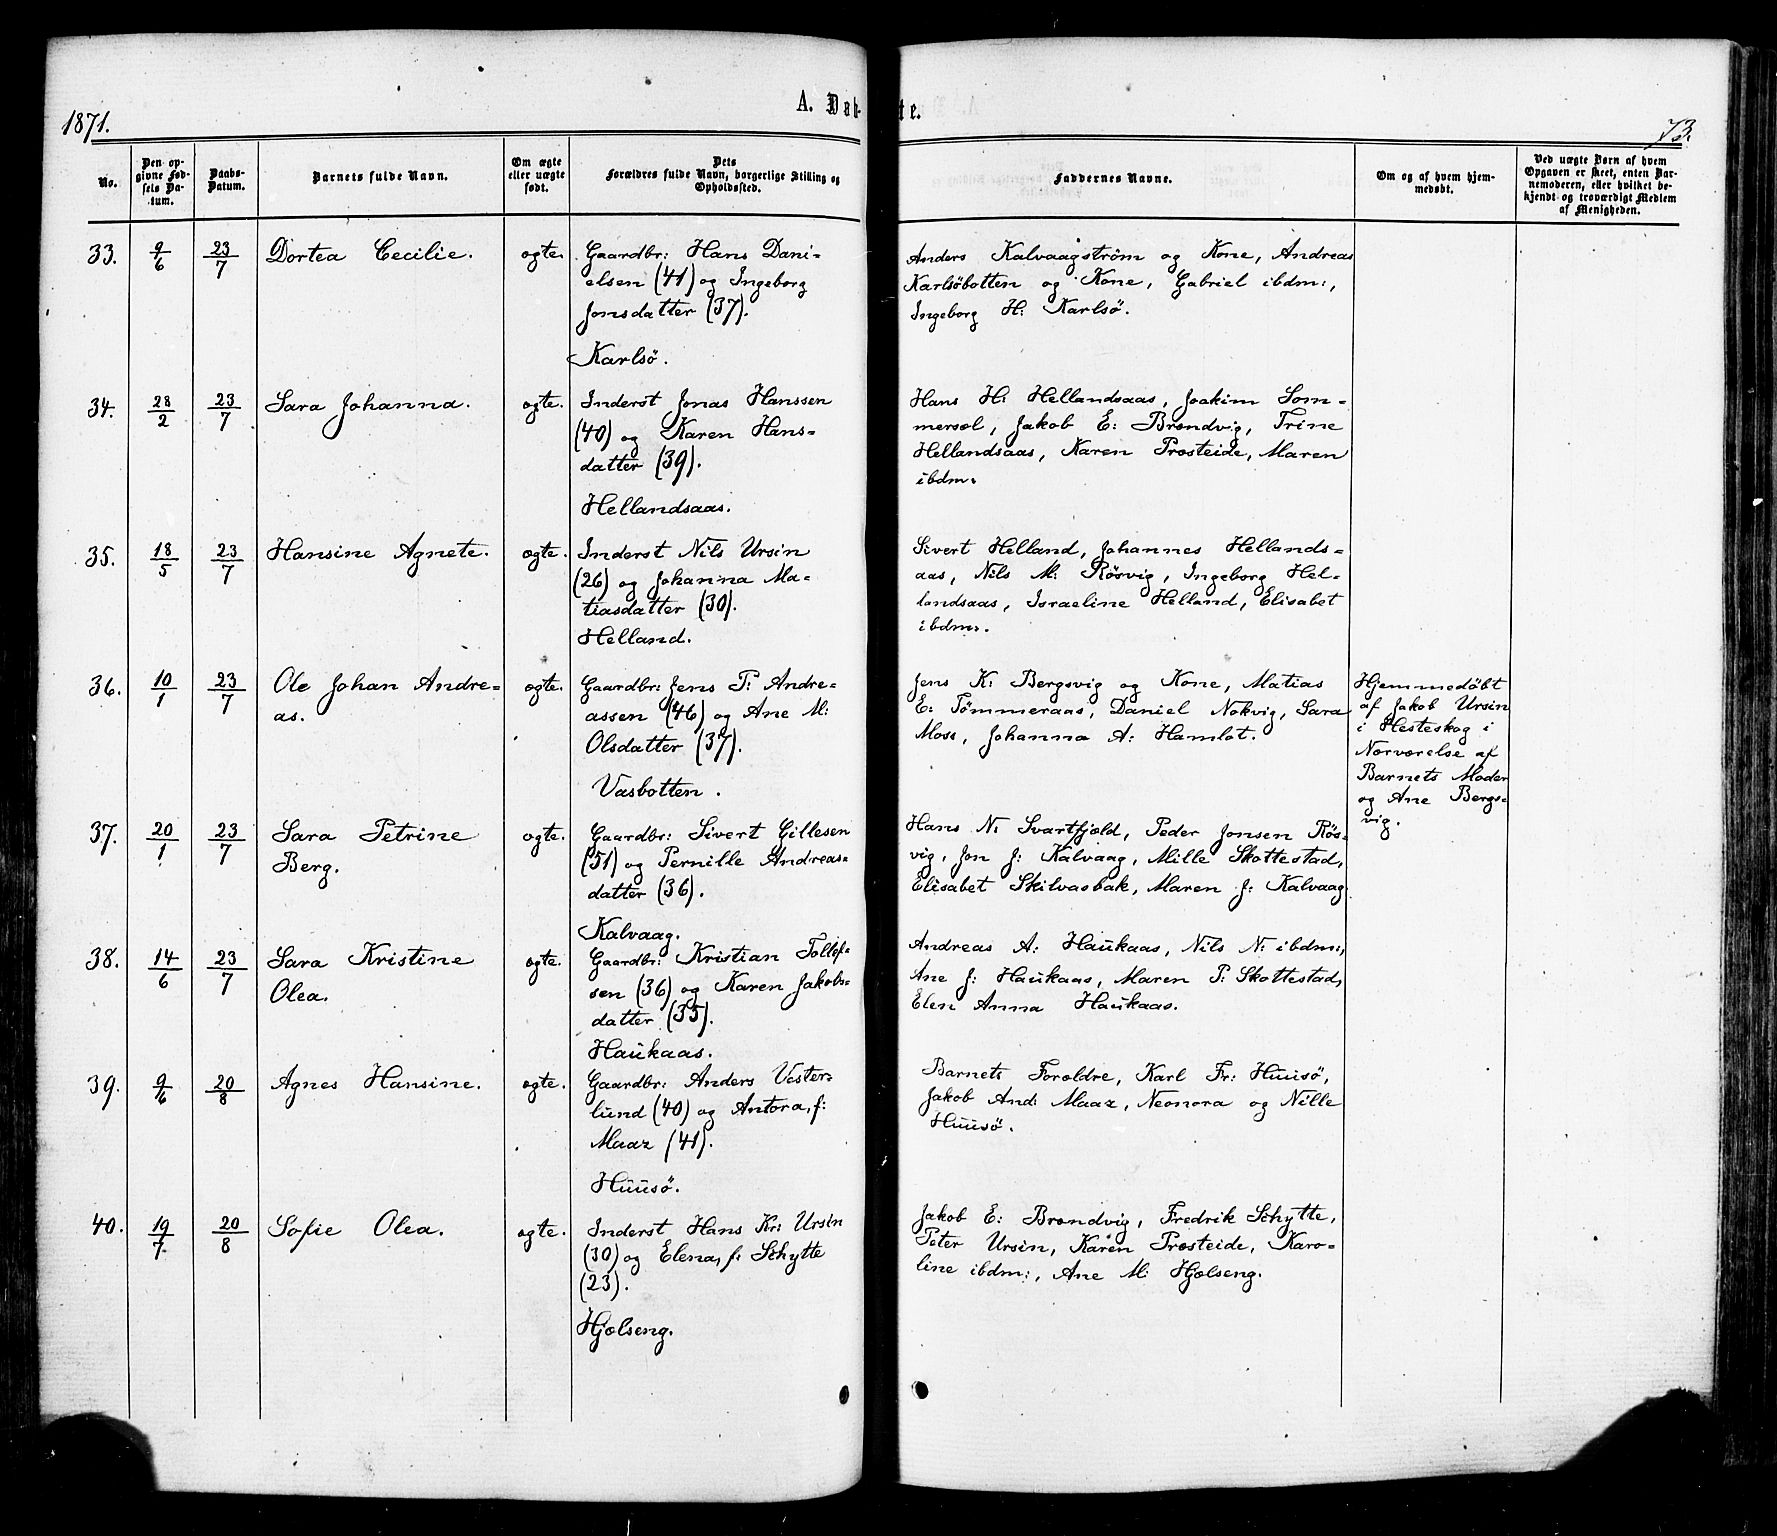 1871.
A. Døb-
te.
73.
No.
Den op-
givne Fød-
sels Da-
tum.
Daabs-
Datum.
Barnets fulde Navn.
Om ægte
eller uægte
født.
Dets
Forældres fulde Navn, borgerlige Stilling og
Opholdssted.
Faddernes Navne.
Om og af hvem hjem-
medøbt.
Ved uægte Børn af hvem
Opgaven er skeet, enten Bar-
nemoderen, eller hvilket be-
kjendt og troværdigt Medlem
af Menigheden.
33. 9/6 23/7 Dortea Cecilie. ægte.
Gaardbr: Hans Dani-
elsen (41) og Ingeborg
Jonsdatter (37).
Karlsö.
Anders Kalvaagström og Kone, Andreas
Karlsöbotten og Kone, Gabriel ibdm:,
Ingeborg H: Karlsö.
34. 28/2 23/7 Sara Johanna. ægte.
Inderst Jonas Hanssen
(40) og Karen Hans-
datter (39).
Hellandsaas.
Hans H: Hellandsaas, Joakim Som-
mersæl, Jakob E: Brændvig, Trine
Hellandsaas, Karen Præsteide, Maren
ibdm:
35. 18/5 23/7 Hansine Agnete. ægte.
Inderst Nils Ursin
(26) og Johanna Ma-
tiasdatter (30).
Helland.
Sivert Helland, Johannes Hellands-
aas, Nils M: Rösvig, Ingeborg Hel-
landsaas, Israeline Helland, Elisabet
ibdm:.
36. 10/1 23/7 Ole Johan Andre-
as. ægte.
Gaardbr: Jens P: Andre-
assen (46) og Ane M:
Olsdatter (37).
Vasbotten.
Jens K: Bergsvig og Kone, Matias
E: Tömmeraas, Daniel Nokvig, Sara
Moss, Johanna A: Hamlot.
Hjemmedöbt
af Jakob Ursin
i Hesteskog i
Nærværelse af
Barnets Moder
og Ane Bergs-
vig.
37. 20/1 23/7 Sara Petrine
Berg. ægte.
Gaardbr: Sivert Gillesen
(51) og Pernille Andreas-
datter (36).
Kalvaag.
Hans N: Svartfjæld, Peder Jonsen Rös-
vig, Jon J: Kalvaag, Mille Skottestad,
Elisabet Skilvasbak, Maren J: Kalvaag
38. 14/6 23/7 Sara Kristine
Olea. ægte.
Gaardbr: Kristian Tollef-
sen (36) og Karen Jakobs-
datter (35).
Haukaas.
Andreas A: Haukaas, Nils N: ibdm:,
Ane J: Haukaas, Maren P: Skottestad,
Elen Anna Haukaas.
39. 9/6 20/8 Agnes Hansine. ægte.
Gaardbr: Anders Vester-
lund (40) og Antora, f:
Maaz (41).
Huusö.
Barnets Forældre, Karl Fr: Huusö,
Jakob And: Maaz, Neonora og Nille
Huusö.
40. 19/7. 20/8 Sofie Olea. ægte.
Inderst Hans Kr: Ursin
(30) og Elena, f: Schytte
(23).
Hjælseng.
Jakob E: Brændvig, Fredrik Schytte,
Peter Ursin, Karen Præsteide, Karo-
line ibdm:, Ane M: Hjælseng.